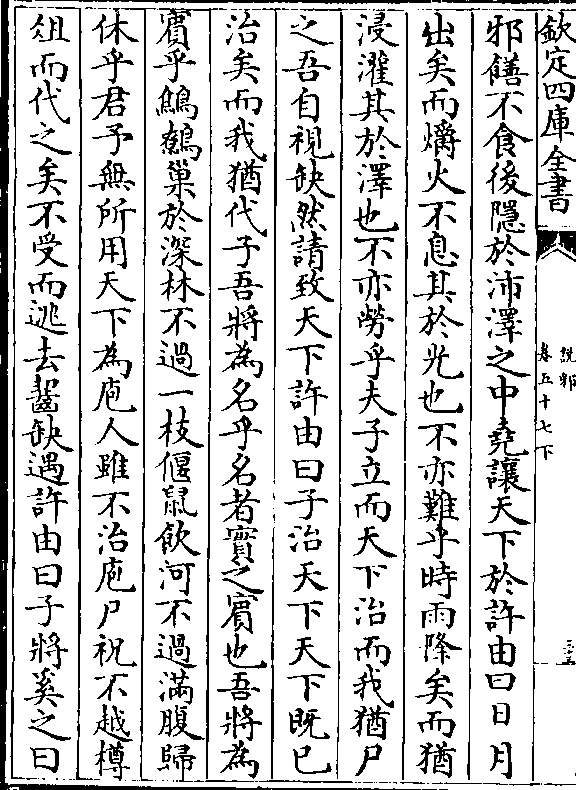 欽定四庫全書
說郛
卷五十七下
邪饍不食後隱於沛澤之中堯讓天下於許由曰日月
出矣而爝火不息其於光也不亦難乎時雨降矣而猶
浸灌其於澤也不亦勞乎夫子立而天下治而我猶尸
之吾自視缺然請致天下許由曰子治天下天下既已
治矣而我猶代子吾將為名乎名者實之賓也吾將為
賓乎鷦鷯巢於深林不過一枝偃鼠飲河不過滿腹歸
休乎君予無所用天下為庖人雖不治庖尸祝不越樽
俎而代之矣不受而逃去齧缺遇許由曰子將奚之曰